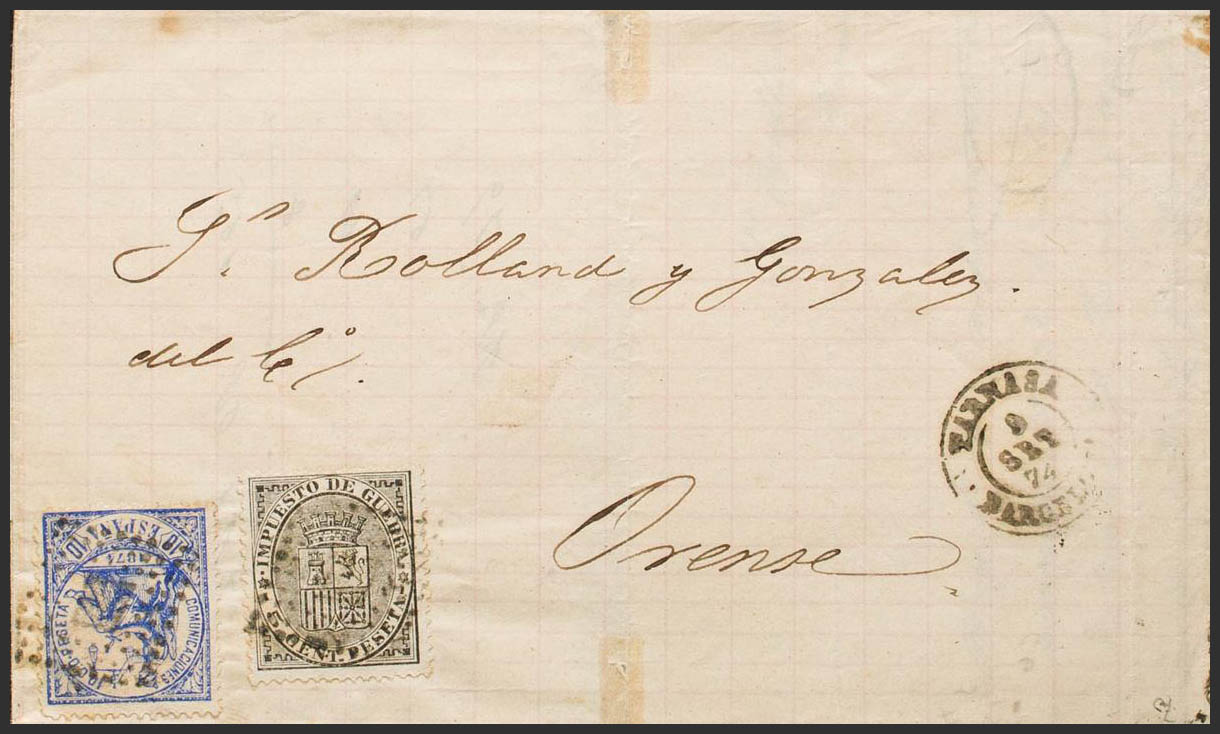 Sʳ. Rolland y Gonzalez.
del Cº/.
Orense
TARRASA
9
SET
74
BARCEL
IMPUESTO DE GUERRA
5 CENT. PESETA
10 ESPAÑA 10
1874
COMUNICACIONES